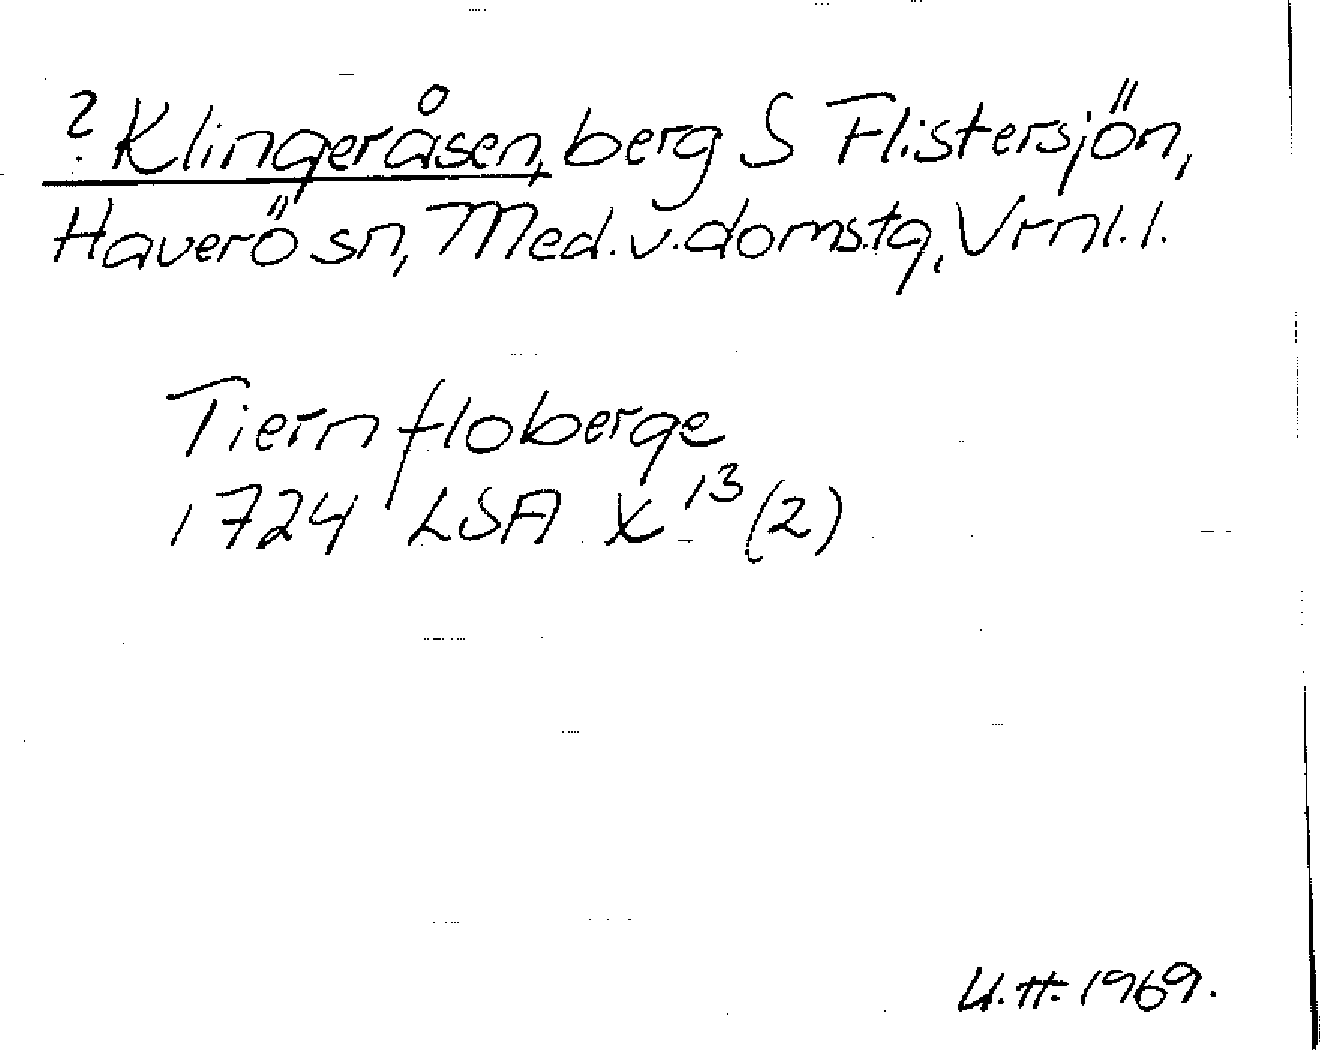 ? Klingeråsen, berg S Flistersjön,
Haverö sn, Med. v. doms.tg, Vrnl. l.
Tiernfloberge
1724 LSA X 13 (2)
U.H. 1969.